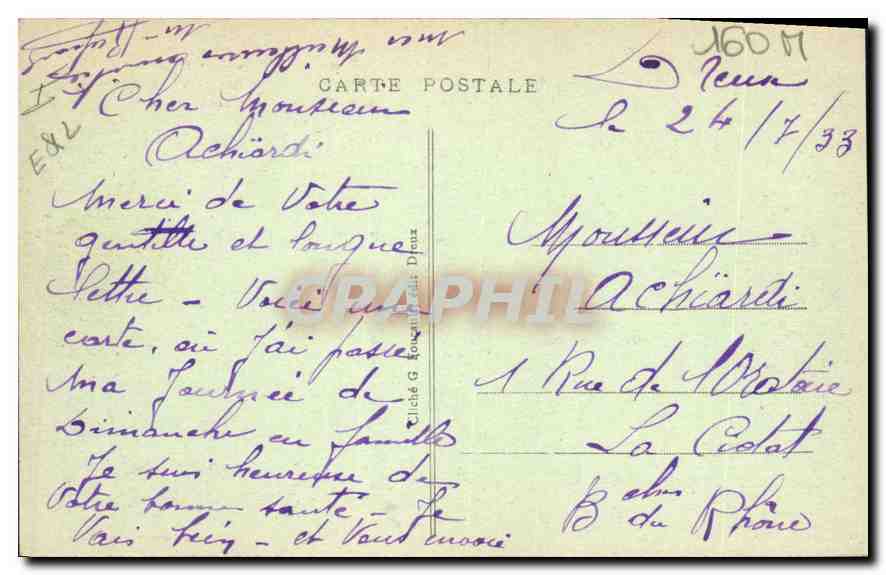 160 M
E&L
CARTE POSTALE
Dreux
le 24/7/33
Cher Monsieur
Achiardi
Merci de Votre
gentille et longue
lettre – Voici une
carte, où j'ai passé
ma Journée de
Dimanche en famille
Je suis heureuse de
Votre bonne santé – Je
Vais bien – et Vous envoie
mes meilleures
Monsieur
Achiardi
1 Rue de l'Oratoire
La Ciotat
Bches du Rhône
Cliché G. Foucault, édit. Dreux
GRAPHIL